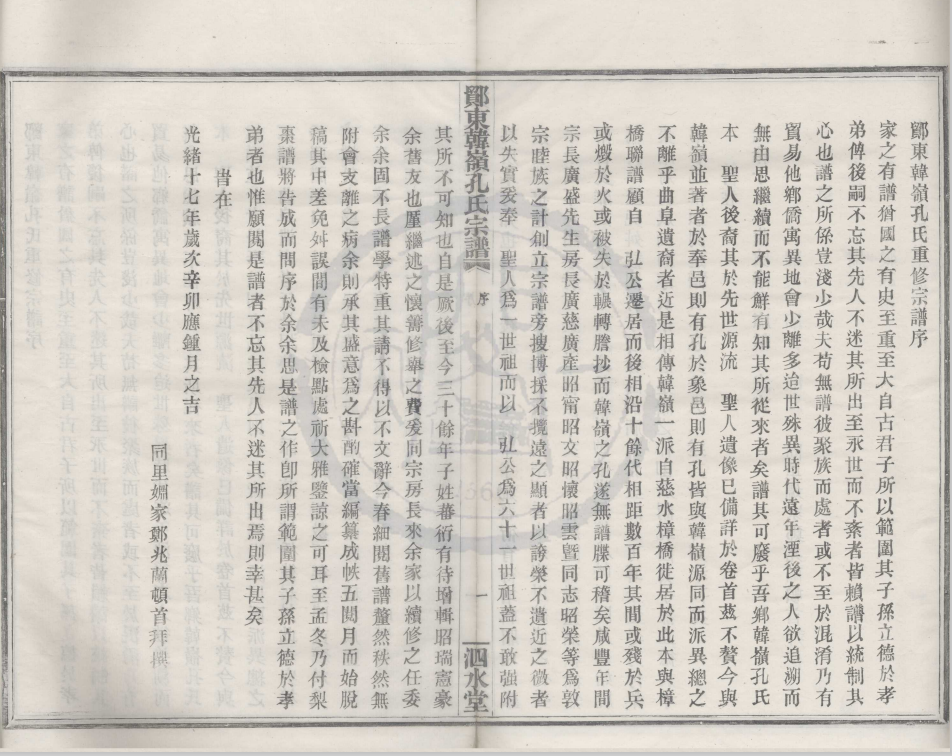 鄞東韓嶺孔氏重修宗譜序
家之有譜猶國之有史至重至大自古君子所以範圍其子孫立德於孝
弟俾後嗣不忘其先人不迷其所出至永世而不紊者皆賴譜以統制其
心也譜之所係豈淺少哉夫苟無譜彼聚族而處者或不至於混淆乃有
貿易他鄉僑寓異地會少離多迨世殊異時代遠年湮後之人欲追溯而
無由思繼續而不能鮮有知其所從來者矣譜其可廢乎吾鄉韓嶺孔氏
本 聖人後裔其於先世源流 聖人遺像已備詳於卷首茲不贅今與
韓嶺並著者於奉邑則有孔於象邑則有孔皆與韓嶺源同而派異總之
不離乎曲阜遺裔者近是相傳韓嶺一派自慈水樟橋徙居於此本與樟
橋聯譜顧自 弘公遷居而後相沿十餘代相距數百年其間或殘於兵
或燬於火或被失於輾轉謄抄而韓嶺之孔遂無譜牒可稽矣咸豐年間
宗長廣盛先生房長廣慈廣產昭甯昭文昭懷昭雲暨同志昭榮等為敦
宗睦族之計創立宗譜旁搜博採不攬遠之顯者以誇榮不遺近之微者
以失實爰奉 聖人為一世祖而以 弘公為六十一世祖蓋不敢強附
鄞東韓嶺孔氏宗譜
序
一
泗水堂
其所不可知也自是厥後至今三十餘年子姓蕃衍有待增輯昭瑞憲豪
余舊友也厪繼述之懷籌修舉之費爰同宗房長來余家以續修之任委
余余固不長譜學特重其請不得以不文辭今春細閱舊譜釐然秩然無
附會支離之病余則承其盛意為之斟酌確當編纂成帙五閱月而始脫
稿其中差免舛誤間有未及檢點處祈大雅鑒諒之可耳至孟冬乃付梨
棗譜將告成而問序於余余思是譜之作卽所謂範圍其子孫立德於孝
弟者也惟願閱是譜者不忘其先人不迷其所出焉則幸甚矣
旹在
光緒十七年歲次辛卯應鍾月之吉
同里姻家鄭兆蘭頓首拜撰